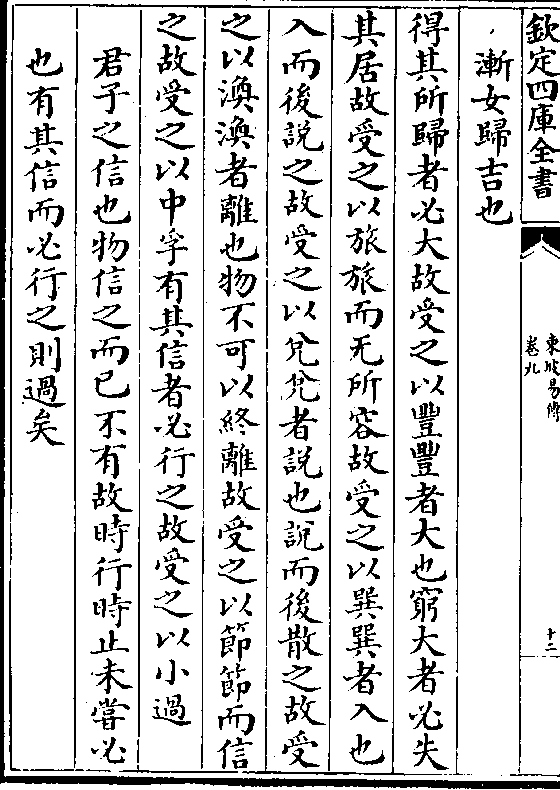 欽定四庫全書
東坡易傳
卷九
十三
漸女歸吉也
得其所歸者必大故受之以豐豐者大也窮大者必失
其居故受之以旅旅而无所容故受之以巽巽者入也
入而後說之故受之以兊兊者說也說而後散之故受
之以渙渙者離也物不可以終離故受之以節節而信
之故受之以中孚有其信者必行之故受之以小過
君子之信也物信之而已不有故時行時止未嘗必
也有其信而必行之則過矣